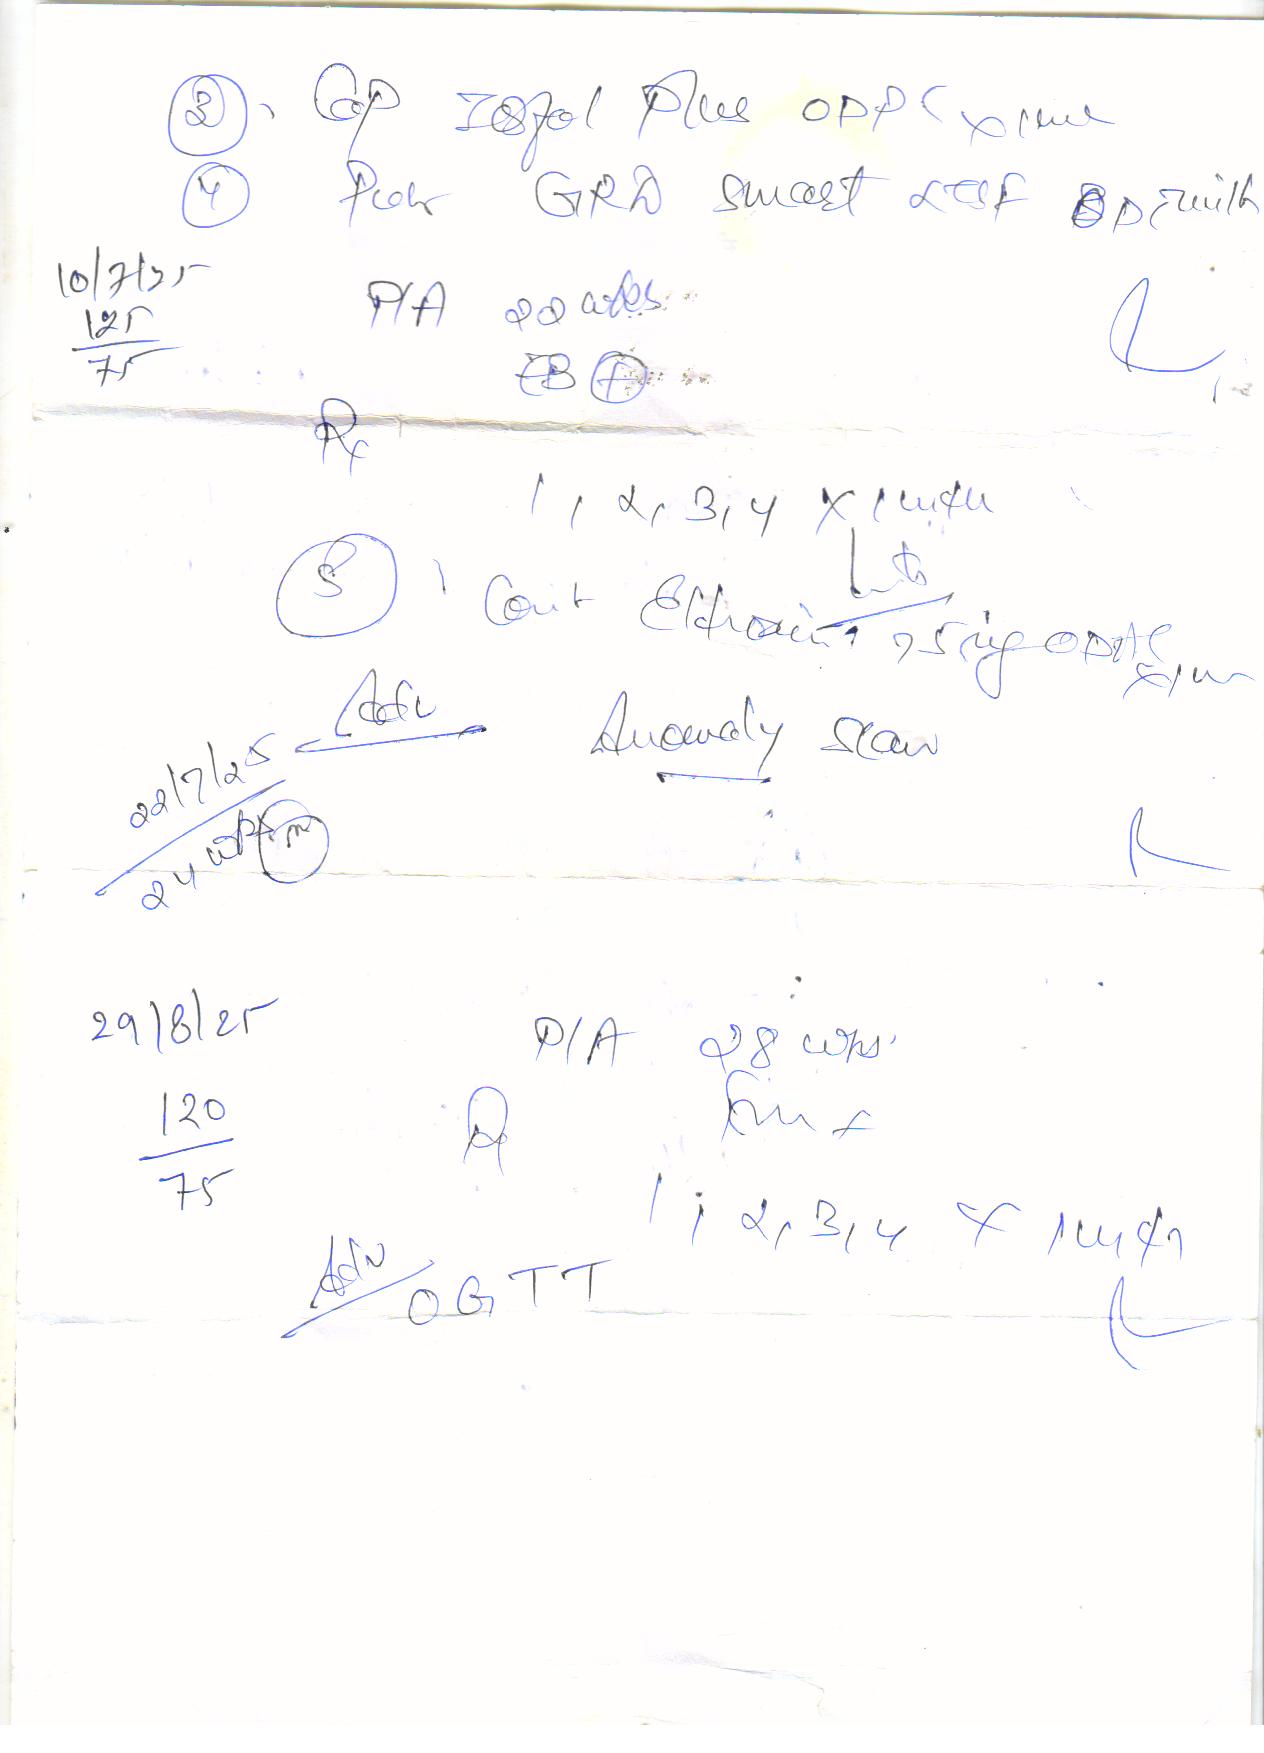 3. Cap Isofol Plus ODPC x 1 mth
4 Pwdr GRD Smart 2TSF BD c milk
10/7/25
125
75
P/A 22 wks
EB +
Rx
1, 2, 3, 4 x 1 mth
5. Cont Eltroxin 75 mg ODAC
Adv Anomaly Scan
22/7/25
24 wks
29/8/25 P/A 28 wks
120
75
Rx
1, 2, 3, 4 x 1 mth
Adv OGTT